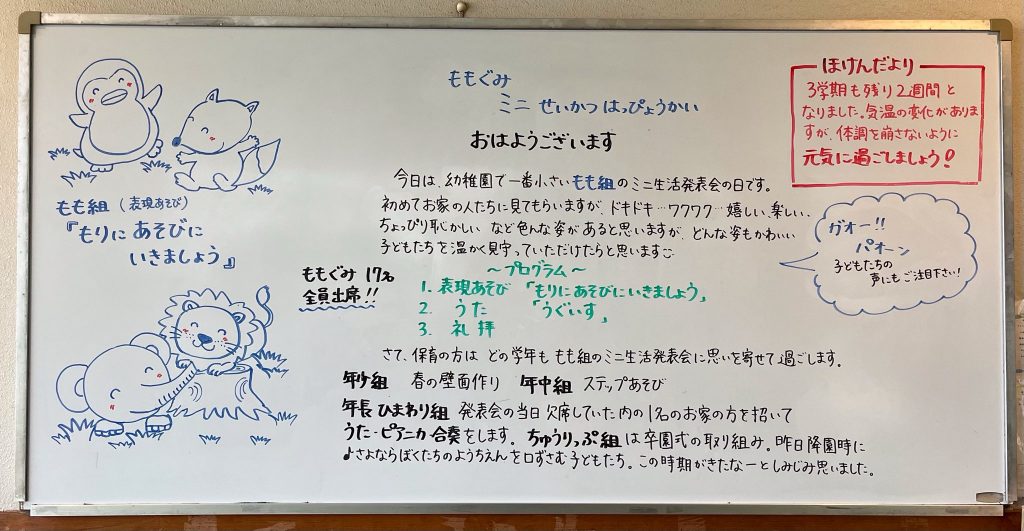 ももぐみ
ミニ せいかつ はっぴょうかい
おはようございます
今日は、幼稚園で一番小さいもも組のミニ生活発表会の日です。
初めてお家の人たちに見てもらいますが、ドキドキ…ワクワク…嬉しい、楽しい、
ちょっぴり恥かしい など色んな姿があると思いますが、どんな姿もかわいい
子どもたちを温かく見守っていただけたらと思います
ももぐみ 17名
全員出席!!
～プログラム～
1. 表現あそび 「もりにあそびにいきましょう」
2. うた 「うぐいす」
3. 礼拝
さて、保育の方は どの学年も もも組のミニ生活発表会に思いを寄せて過ごします。
年少組 春の壁面作り 年中組 ステップあそび
年長 ひまわり組 発表会の当日欠席していた内の1名のお家の方を招いて
うた・ピアニカ合奏をします。ちゅうりっぷ組は卒園式の取り組み。昨日降園時に
♪さよならぼくたちのようちえんを口ずさむ子どもたち。この時期がきたなーとしみじみ思いました。
もも組 (表現あそび)
『もりに あそびに
いきましょう』
ほけんだより
3学期も残り2週間と
なりました。気温の変化がありま
すが、体調を崩さないように
元気に過ごしましょう!
ガオー!!
パオーン
子どもたちの
声にもご注目下さい!